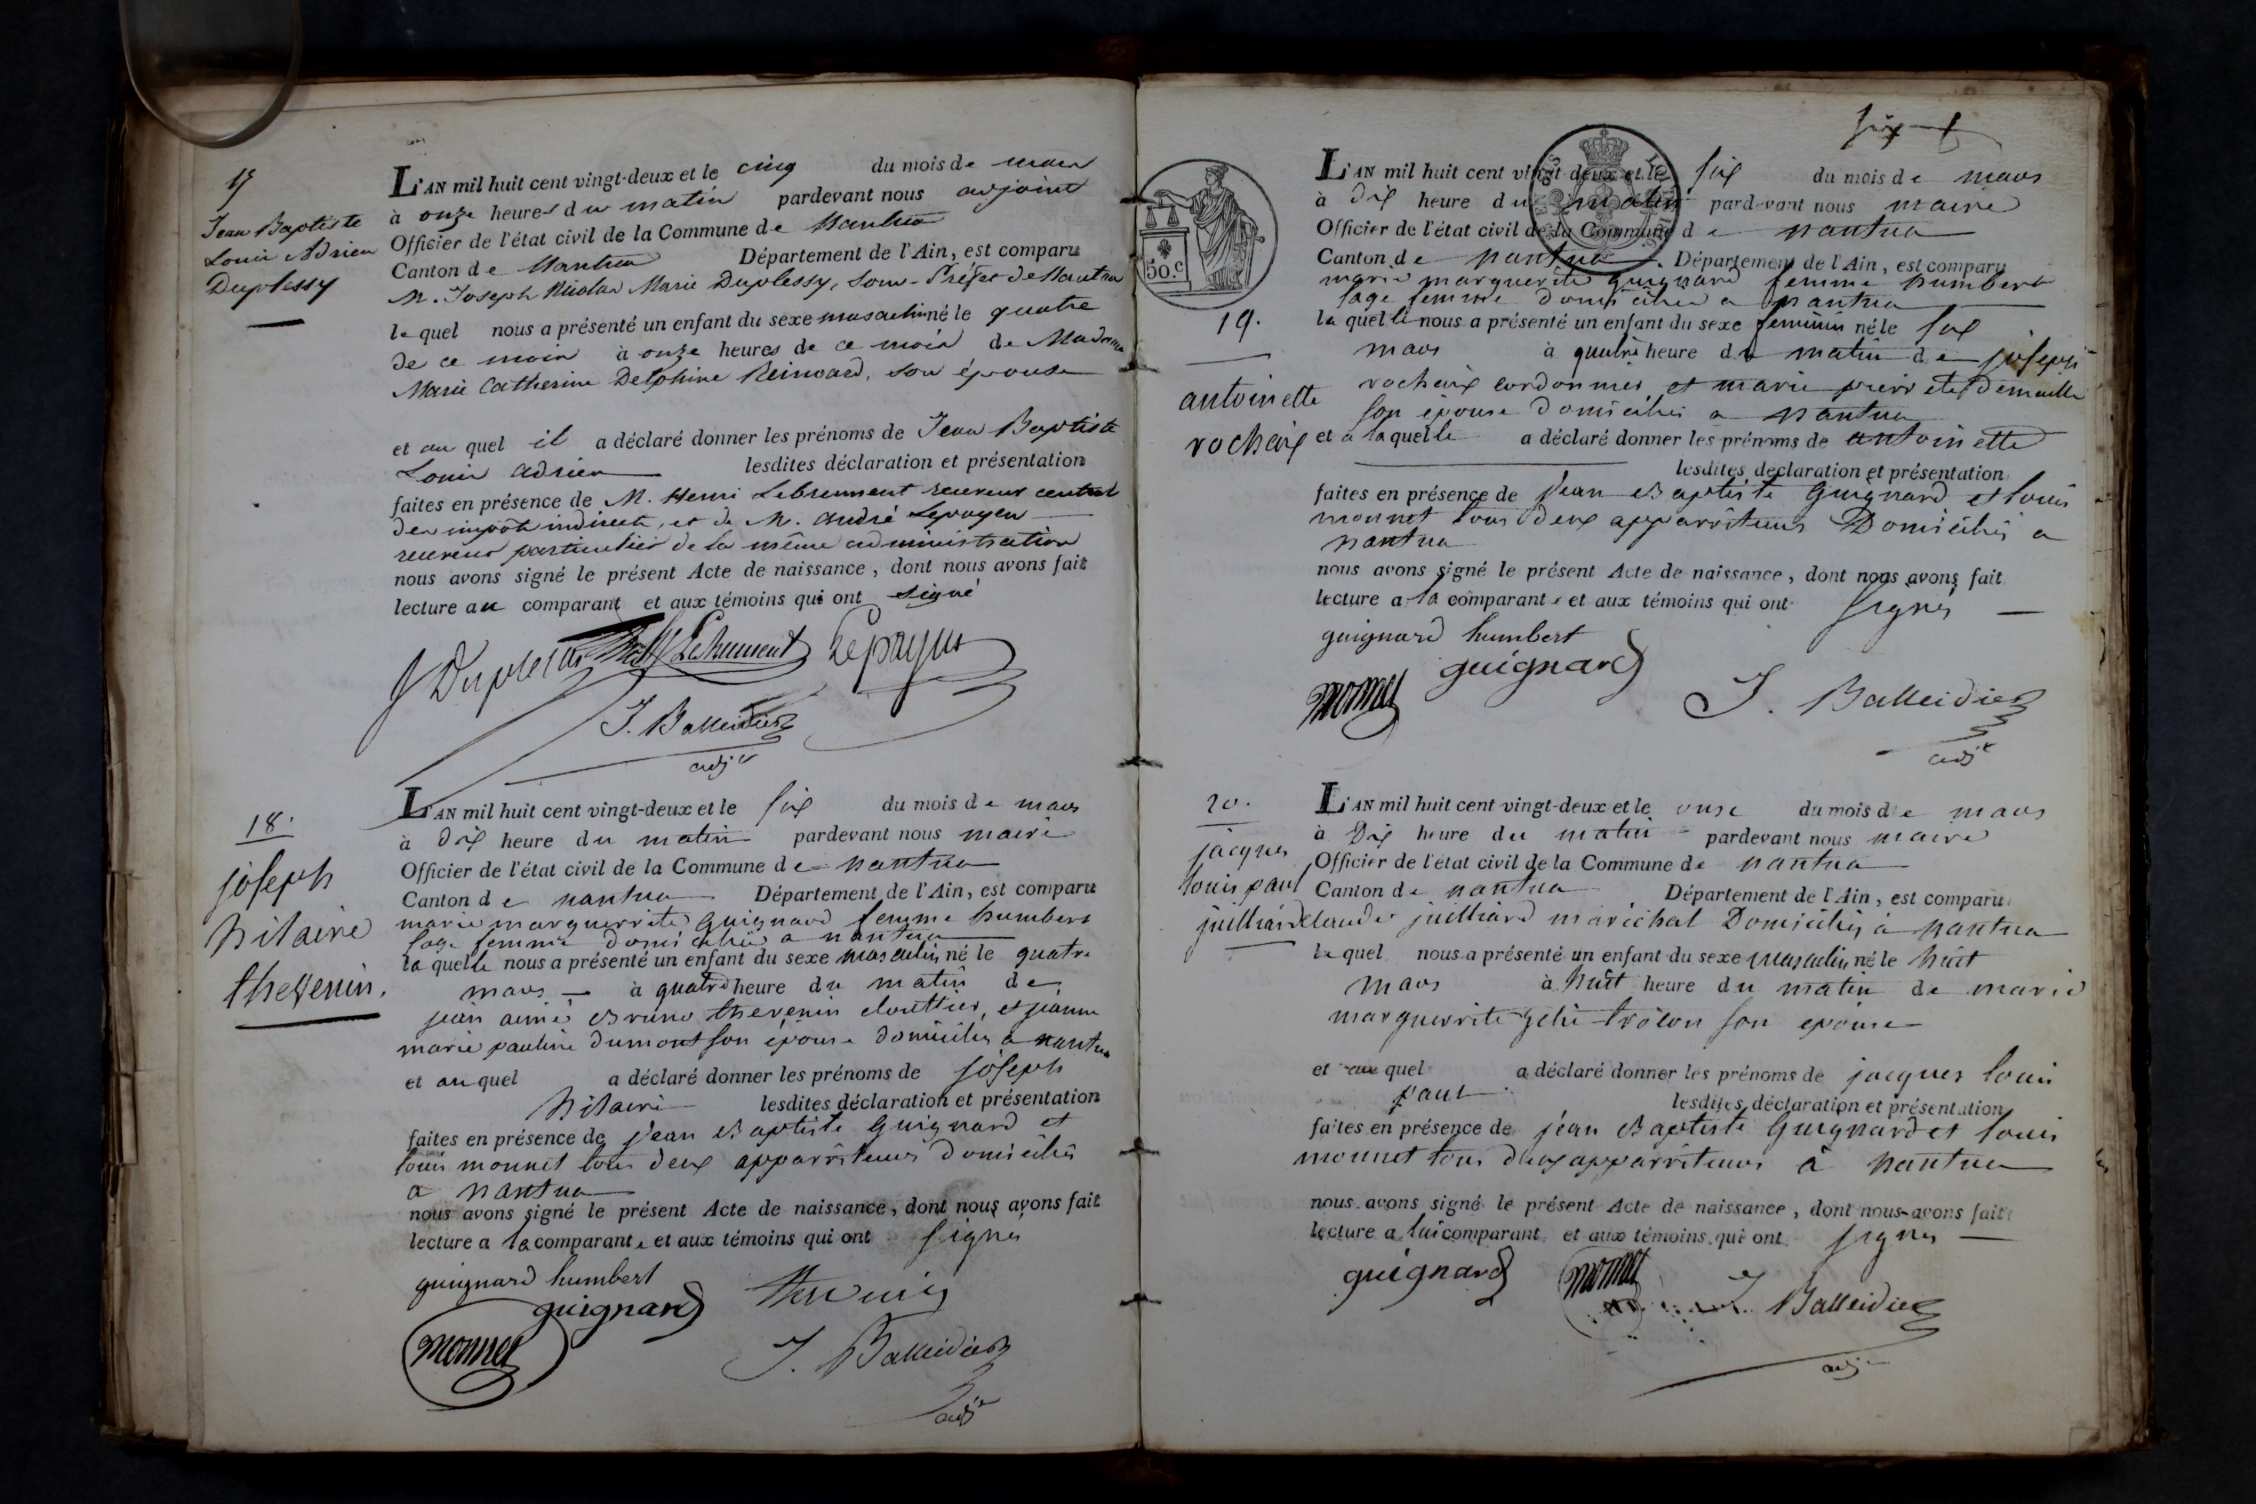 17
Jean Baptiste
Louis Adrien
Duplessy
L'AN mil huit cent vingt-deux et le cinq du mois de mars
à onze heures du matin pardevant nous adjoint
Officier de l'état civil de la Commune de Nantua
Canton de Nantua Département de l'Ain, est comparu
M. Joseph Nicolas Marie Duplessy, Sous-Préfet de Nantua
lequel nous a présenté un enfant du sexe masculin né le quatre
de ce mois à onze heures de ce mois de Madame
Marie Catherine Delphine Reinward, son épouse
et au quel il a déclaré donner les prénoms de Jean Baptiste
Louis adrien lesdites déclaration et présentation
faites en présence de M. Henri Lebrument receveur central
des impôts indirects, et de M. andré Lepayen
receveur particulier de la même administration
nous avons signé le présent Acte de naissance, dont nous avons fait
lecture au comparant et aux témoins qui ont signé
J Duplessis Lebrument Lepayen
J. Balleidier
adjt
18.
joseph
hilaire
thevenin.
L'AN mil huit cent vingt-deux et le six du mois de mars
à dix heure du matin pardevant nous maire
Officier de l'état civil de la Commune de nantua
Canton de nantua Département de l'Ain, est comparu
marie marguerrite guignard femme humbert
sage femme domiciliée a nantua
la quelle nous a présenté un enfant du sexe masculin né le quatre
mars à quatre heure du matin de
jean aimé Bruno thevenin clouttier, et jeanne
marie pauline dumont son épouse domiciliés a nantua
et au quel a déclaré donner les prénoms de joseph
hilaire lesdites déclaration et présentation
faites en présence de jean Baptiste Guignard et
louis monnet tous deux apparriteurs domiciliés
a nantua
nous avons signé le présent Acte de naissance, dont nous avons fait
lecture a la comparante et aux témoins qui ont signés
guignard humbert
guignard thevenin
monnet
J. Balleidier
adjt
six
50.c
19.
antoinette
rochaix
L'AN mil huit cent vingt-deux et le six du mois de mars
à dix heure du matin pardevant nous maire
Officier de l'état civil de la Commune de nantua
Canton de nantua Département de l'Ain, est comparu
marie marguerite guignard femme humbert
sage femme domiciliée a nantua
la quelle nous a présenté un enfant du sexe feminin né le six
mars à quatre heure du matin de joseph
rochaix cordonnier et marie pierrette
son épouse domiciliés a nantua
et a laquelle a déclaré donner les prénoms de antoinette
lesdites déclaration et présentation
faites en présence de jean Baptiste Guignard et louis
monnet tous deux apparriteurs Domiciliés a
nantua
nous avons signé le présent Acte de naissance, dont nous avons fait
lecture a la comparante et aux témoins qui ont signés
guignard humbert
guignard
monnet
J. Balleidier
adjt
20.
jacques
louis paul
juilliard
L'AN mil huit cent vingt-deux et le onse du mois de mars
à Dix heure du matin pardevant nous maire
Officier de l'état civil de la Commune de nantua
Canton de nantua Département de l'Ain, est comparu
claude juilliard maréchal Domiciliés à nantua
le quel nous a présenté un enfant du sexe masculin né le huit
mars à huit heure du matin de marie
marguerrite son epouse
et au quel a déclaré donner les prénoms de jacques louis
paul
lesdites déclaration et présentation
faites en présence de jean Baptiste Guignard et louis
monnet tous deux apparriteurs à nantua
nous avons signé le présent Acte de naissance, dont nous avons fait
lecture a lui comparant et aux témoins qui ont signés
guignard monnet
J. Balleidier
adjt